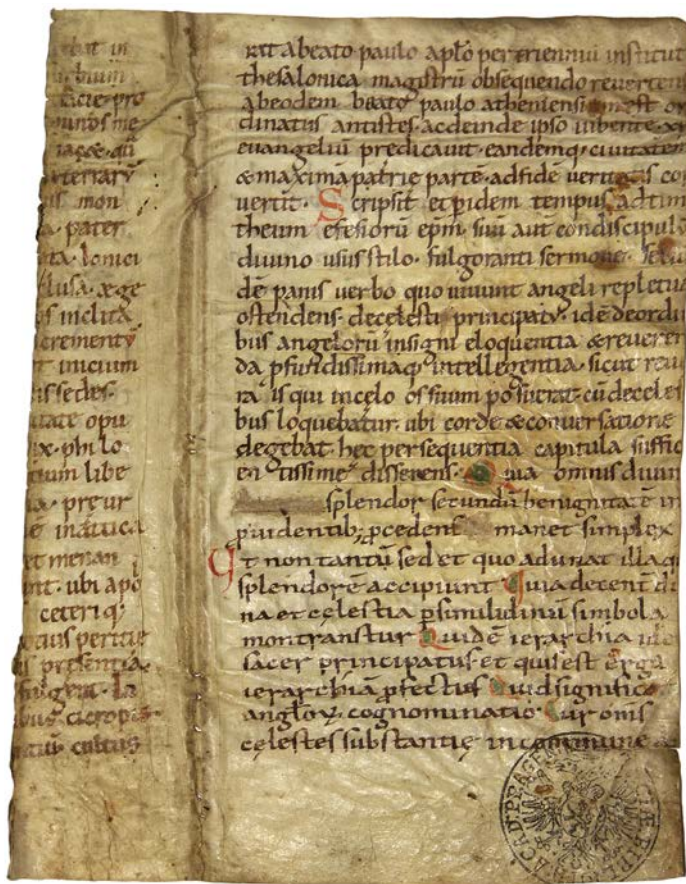 bat in
bium
acie pro
minos me
iaçæ· qu̅
terrarū
us mon
a· pater
ta· lonici
lusa· æ ge
os inclita
crementū
t inicium
is sedes·
uitate opu
ix· philo
tium libe
ia· preur
ē inattica
et menan
nt· ubi apo
ceteri q·
ocius peritie
is presentia·
fulgent· la
ibus cicropis·
ntiū cultus
rat abeato paulo aplo per trienniū institut
thesalonica magistrū obsequendo revertens
abeodem beato paulo atheniensium est or
dinatus antistes· ac deinde ipso iubente· xp
evangeliū predicavit· eandemq; civitatem
& maximā patrie partē· adfidē veritatis con
vertit· Scripsit et pidem tempus, adtim
theum efesiorū epm̅· suū aut condiscipulū
divino usus stilo· fulgoranti sermone·
dē panis verbo quo vivunt angeli repletus
ostendens· decelesti principatu· idē deordi
bus angelorū insigni eloquentia & reveren
da pfundissimaq; intellegentia· sicut reve
ra is qui incelo os suum posuerat· cū deceles
bus loquebatur· ubi corde & conversatione
degebat· hec persequentia capitula suffic
en tissime disserens· Quia omnis divin
splendor secundū benignitatē in
pvidentib; pcedens manet simplex
Et non tantū sed et quo adunat illaq
splendorē accipiunt Quia decent di
na et cęlestia p similidinū simbola
montranstur Quid ē ierarchia ide
sacer principatus et quis est erga
ierarchiā pfectus Quid significat
anglorx cognominatio Cur om̅s
cęlestes substantię in commune